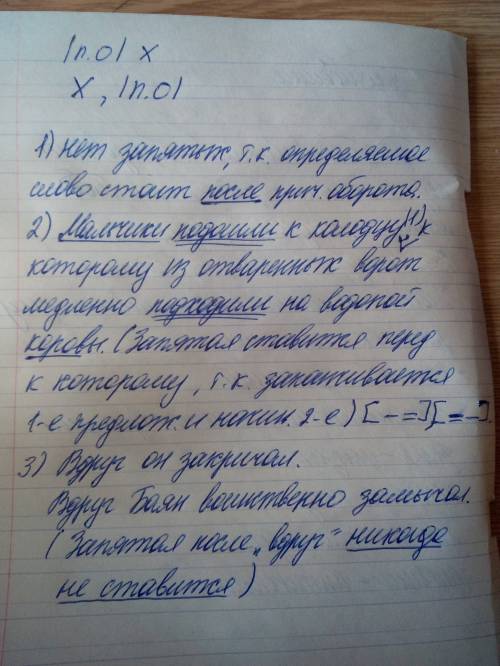 |п.о| х
х, |п.о|
1) нет запятых, т.к. определяемое
слово стоит после прич. оборота.
2) Мальчики подошли к колодцу(1), к
которому из отваренных ворот
медленно подходили на водопой
коровы. (Запятая ставится перед
к которому, т.к. заканчивается
1-е предлож. и начин. 2-е) [- =] [= -].
3) Вдруг он закричал.
Вдруг Баян воинственно замычал.
(Запятая после „вдруг" никогда
не ставится)